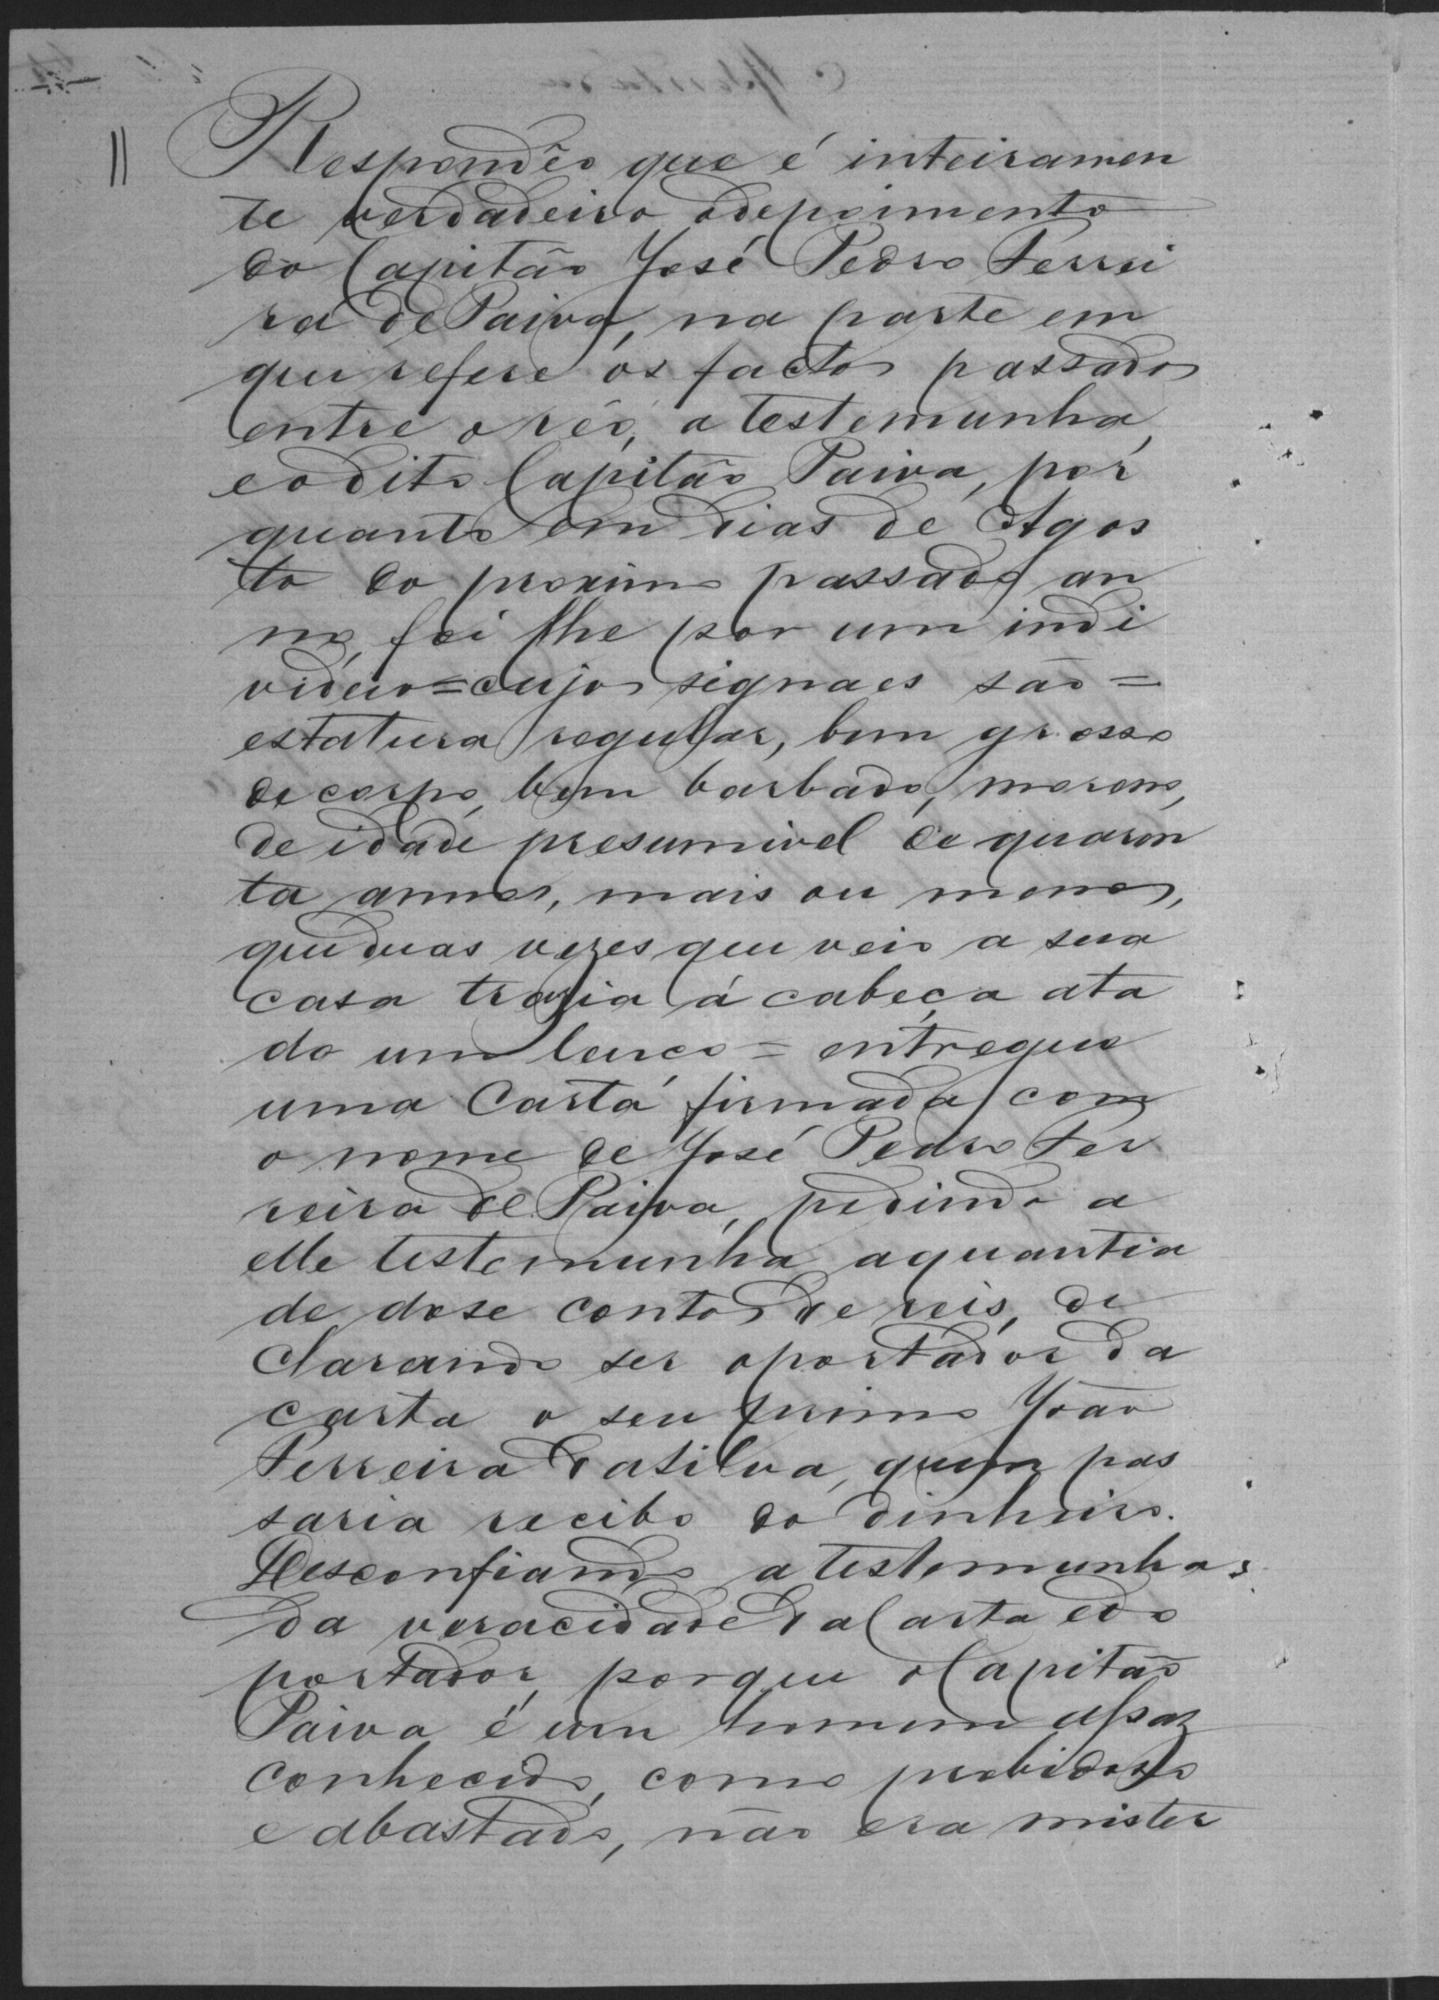 Respondêo que é inteiramen
te verdadeiro odepoimento
do Capitão José Pedro Ferrei
ra de Paiva, na parte em
que refere os factos passados
entre o réo, a testemunha,
eodito Capitão Paiva, por
quanto em dias de Agos
to do proximo passado an
no, foi lhe por um indi
viduo=cujos signaes são=
estatura regular, bem grosso
decorpo, bem barbado, moreno,
de idade presumivel de quaren
ta annos, mais ou menos,
queduas vezes que veio a sua
casa trazia á cabeça ata
do um lenço = entregue
uma Carta firmada com
o nome de José Pedro Fer
reira de Paiva, pedindo a
elle testemunha aquantia
de dose contos de reis, de
clarando ser oportador da
carta o seu primo João
Ferreira daSilva, quem pas
saria recibo do dinheiro.
Desconfiando a testemunha
da veracidade da Carta edo
portador, porque oCapitão
Paiva é um homem assaz
conhecido, como probidoso
e abastado, não era mister